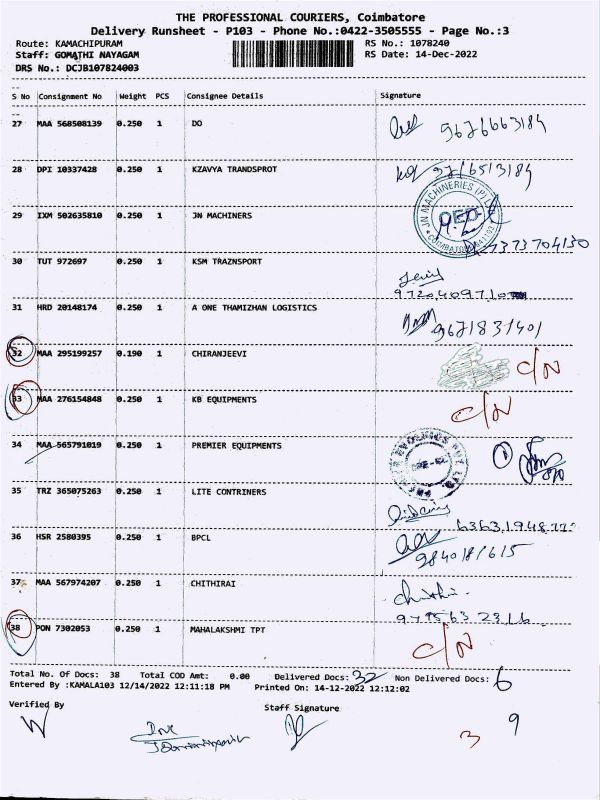 THE PROFESSIONAL COURIERS, Coimbatore
Delivery Runsheet - P103 - Phone No.:0422-3505555 - Page No.:3
Route: KAMACHIPURAM RS No.: 1078240
Staff: GOMATHI NAYAGAM RS Date: 14-Dec-2022
DRS No.: DCJB107824003
S No Consignment No Weight PCS Consignee Details Signature
27 MAA 568508139 0.250 1 DO
28 DPI 10337428 0.250 1 KZAVYA TRANDSPROT
29 IXM 502635810 0.250 1 JN MACHINERS
JN MACHINERIES (P) LTD
7373704130
30 TUT 972697 0.250 1 KSM TRAZNSPORT
31 HRD 20148174 0.250 1 A ONE THAMIZHAN LOGISTICS
32 MAA 295199257 0.190 1 CHIRANJEEVI C/N
33 MAA 276154848 0.250 1 KB EQUIPMENTS C/N
34 MAA 565791019 0.250 1 PREMIER EQUIPMENTS 1
35 TRZ 365075263 0.250 1 LITE CONTRINERS
36 HSR 2580395 0.250 1 BPCL
37 MAA 567974207 0.250 1 CHITHIRAI
38 PON 7302053 0.250 1 MAHALAKSHMI TPT C/N
Total No. Of Docs: 38 Total COD Amt: 0.00 Delivered Docs: 32 Non Delivered Docs: 6
Entered By :KAMALA103 12/14/2022 12:11:18 PM Printed On: 14-12-2022 12:12:02
Verified By Staff Signature
3 9